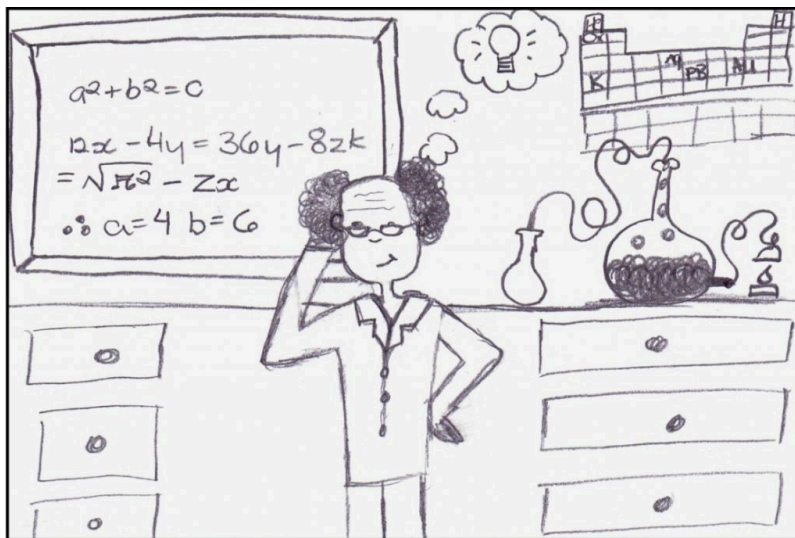 a²+b²=c
12x-4y=36y-8zk
=√π²-zx
∴ a=4 b=6
H H
K PB AU